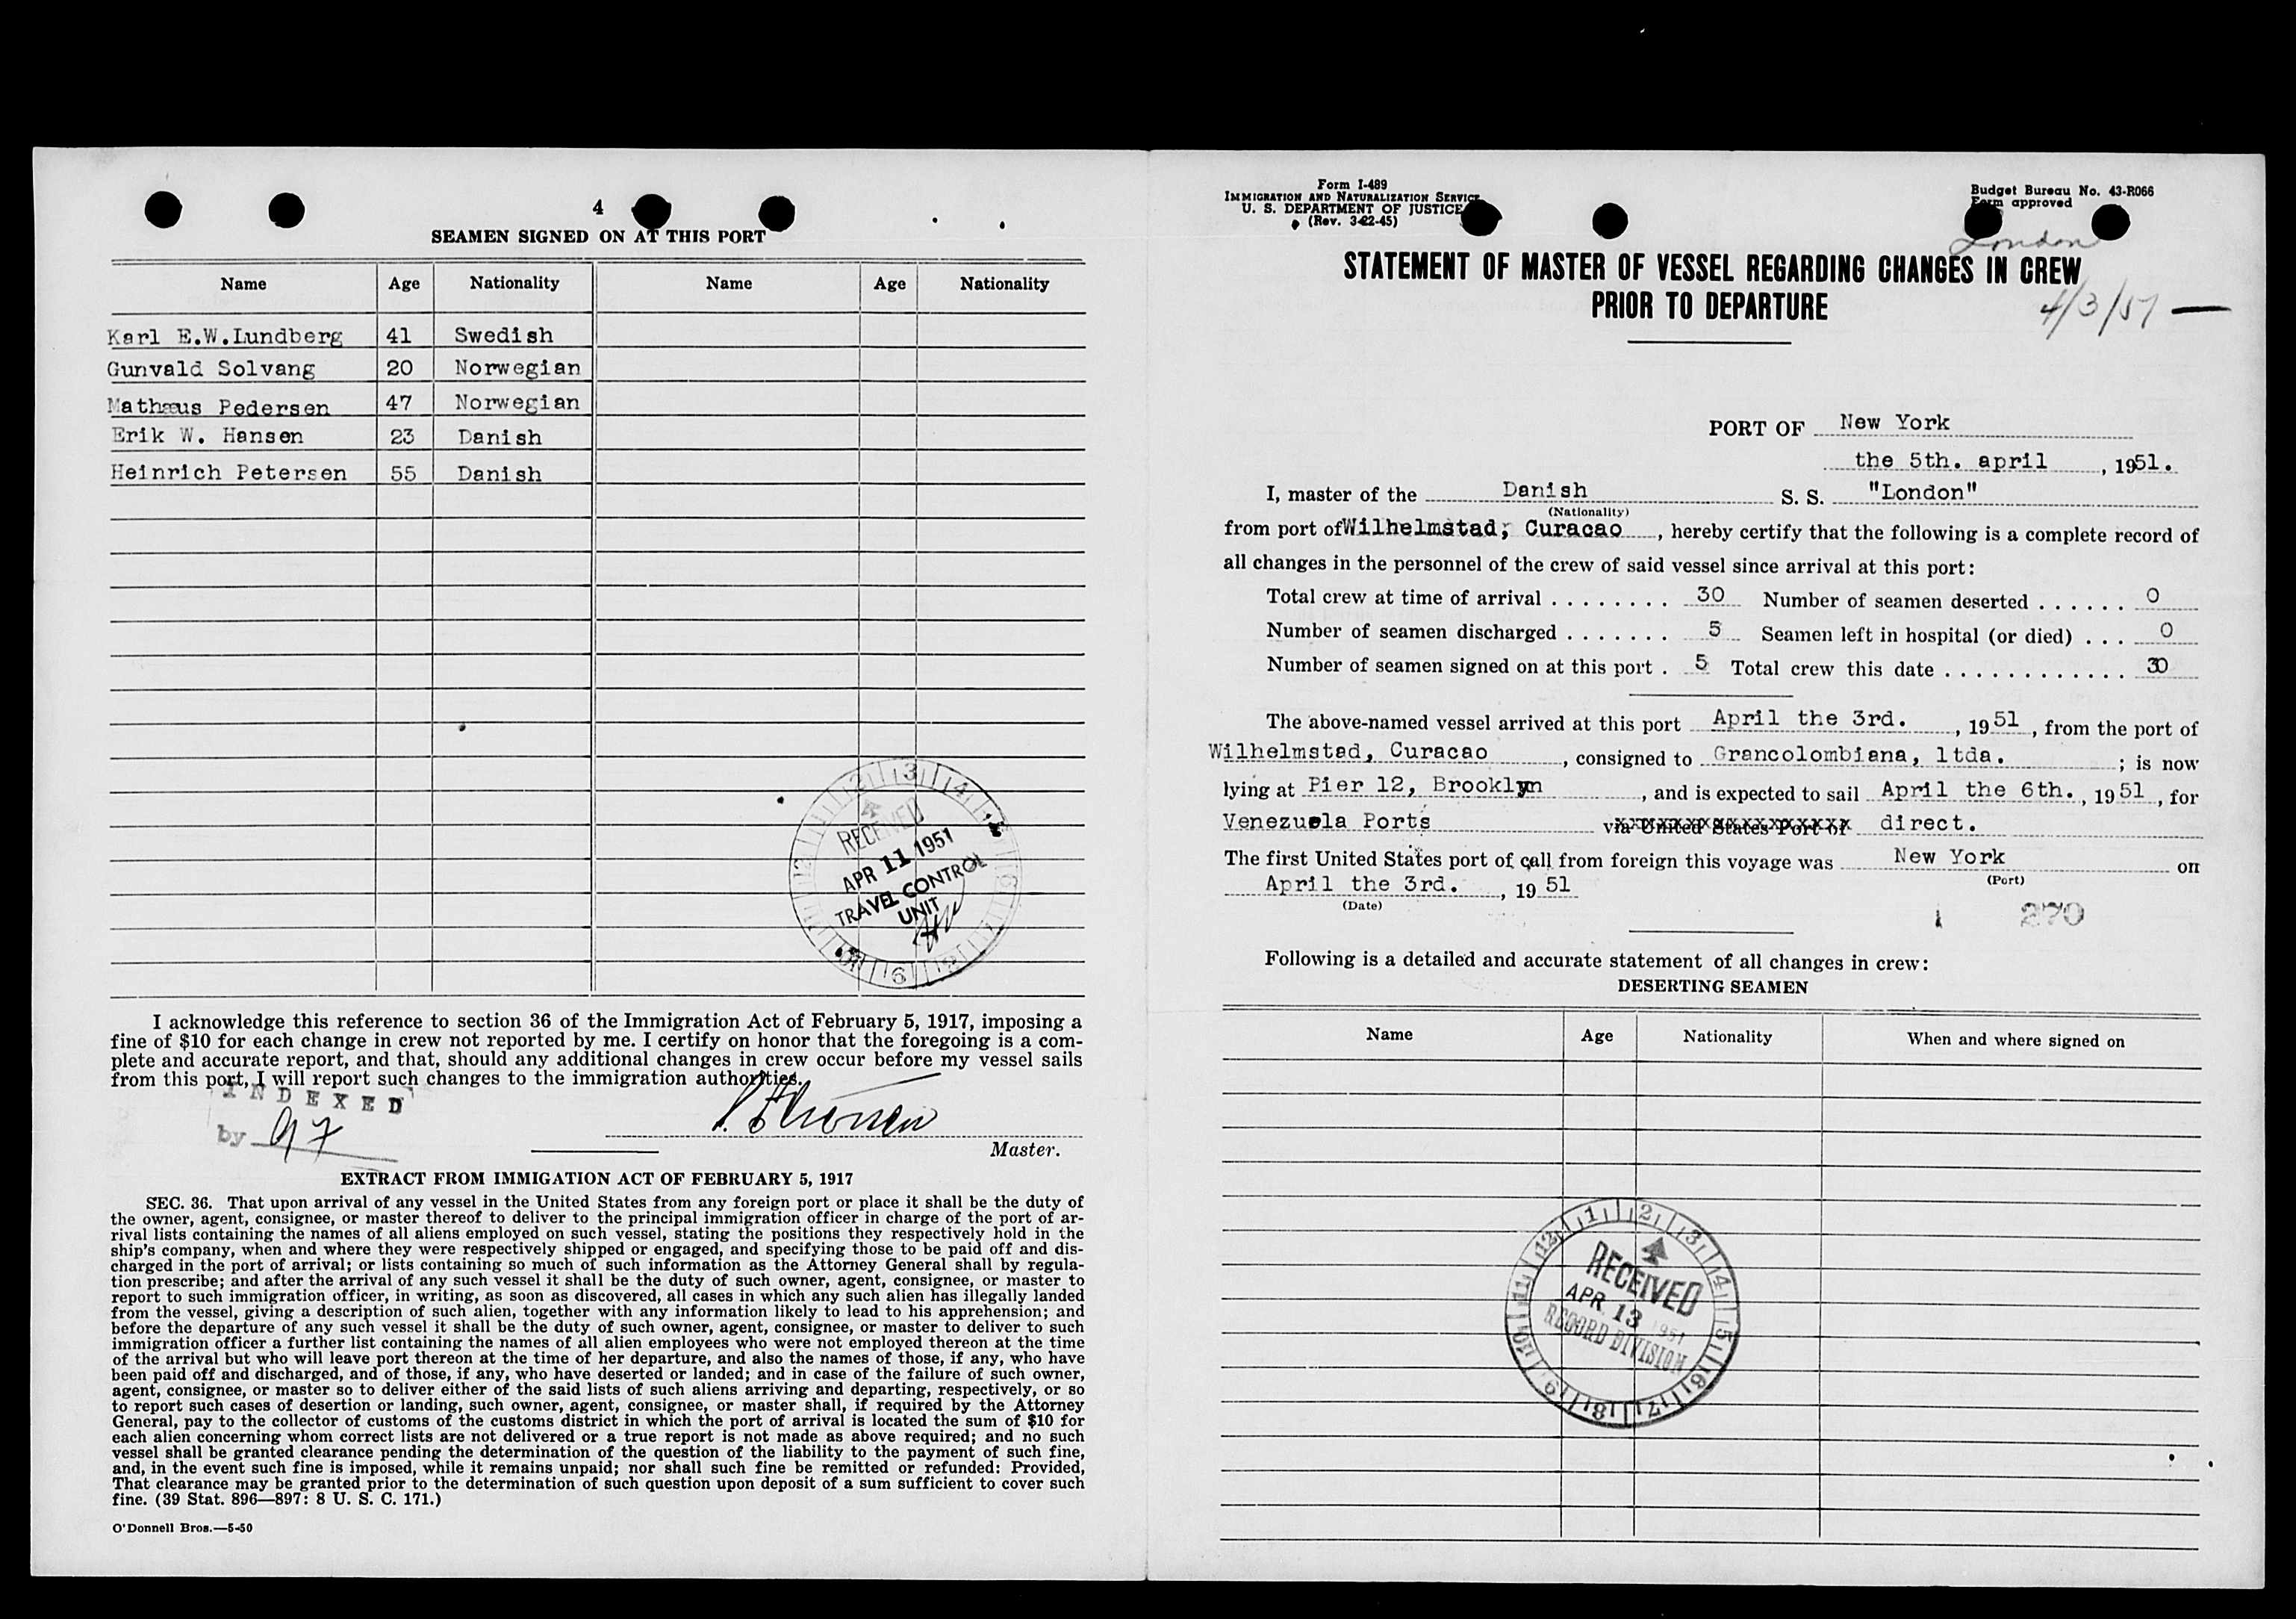 4
SEAMEN SIGNED ON AT THIS PORT
Name Age Nationality Name Age Nationality
Karl E.W.Lundberg 41 Swedish
Gunvald Solvang 20 Norwegian
Mathæus Pedersen 47 Norwegian
Erik W. Hansen 23 Danish
Heinrich Petersen 55 Danish
RECEIVED
APR 11 1951
TRAVEL CONTROL
UNIT
I acknowledge this reference to section 36 of the Immigration Act of February 5, 1917, imposing a
fine of $10 for each change in crew not reported by me. I certify on honor that the foregoing is a com-
plete and accurate report, and that, should any additional changes in crew occur before my vessel sails
from this port, I will report such changes to the immigration authorities.
INDEXED
by
Master.
EXTRACT FROM IMMIGATION ACT OF FEBRUARY 5, 1917
SEC. 36. That upon arrival of any vessel in the United States from any foreign port or place it shall be the duty of
the owner, agent, consignee, or master thereof to deliver to the principal immigration officer in charge of the port of ar-
rival lists containing the names of all aliens employed on such vessel, stating the positions they respectively hold in the
ship's company, when and where they were respectively shipped or engaged, and specifying those to be paid off and dis-
charged in the port of arrival; or lists containing so much of such information as the Attorney General shall by regula-
tion prescribe; and after the arrival of any such vessel it shall be the duty of such owner, agent, consignee, or master to
report to such immigration officer, in writing, as soon as discovered, all cases in which any such alien has illegally landed
from the vessel, giving a description of such alien, together with any information likely to lead to his apprehension; and
before the departure of any such vessel it shall be the duty of such owner, agent, consignee, or master to deliver to such
immigration officer a further list containing the names of all alien employees who were not employed thereon at the time
of the arrival but who will leave port thereon at the time of her departure, and also the names of those, if any, who have
been paid off and discharged, and of those, if any, who have deserted or landed; and in case of the failure of such owner,
agent, consignee, or master so to deliver either of the said lists of such aliens arriving and departing, respectively, or so
to report such cases of desertion or landing, such owner, agent, consignee, or master shall, if required by the Attorney
General, pay to the collector of customs of the customs district in which the port of arrival is located the sum of $10 for
each alien concerning whom correct lists are not delivered or a true report is not made as above required; and no such
vessel shall be granted clearance pending the determination of the question of the liability to the payment of such fine,
and, in the event such fine is imposed, while it remains unpaid; nor shall such fine be remitted or refunded: Provided,
That clearance may be granted prior to the determination of such question upon deposit of a sum sufficient to cover such
fine. (39 Stat. 896—897: 8 U. S. C. 171.)
O'Donnell Bros.—5-50
Form I-489
IMMIGRATION AND NATURALIZATION SERVICE
U. S. DEPARTMENT OF JUSTICE
(Rev. 3-22-45)
Budget Bureau No. 43-R066
Form approved
London
STATEMENT OF MASTER OF VESSEL REGARDING CHANGES IN CREW
PRIOR TO DEPARTURE
4/3/51 —
PORT OF New York
the 5th. april, 1951.
I, master of the Danish S. S. "London"
(Nationality)
from port of Wilhelmstad, Curacao, hereby certify that the following is a complete record of
all changes in the personnel of the crew of said vessel since arrival at this port:
Total crew at time of arrival . . . . . . . . 30 Number of seamen deserted . . . . . . 0
Number of seamen discharged . . . . . . . 5 Seamen left in hospital (or died) . . . 0
Number of seamen signed on at this port . 5 Total crew this date . . . . . . . . . . . . 30
The above-named vessel arrived at this port April the 3rd., 1951, from the port of
Wilhelmstad, Curacao, consigned to Grancolombiana, ltda. ; is now
lying at Pier 12, Brooklyn, and is expected to sail April the 6th., 1951, for
Venezuela Ports via United States Port of direct.
The first United States port of call from foreign this voyage was New York on
(Port)
April the 3rd., 1951
(Date)
270
Following is a detailed and accurate statement of all changes in crew:
DESERTING SEAMEN
Name Age Nationality When and where signed on
RECEIVED
APR 13 1951
RECORD DIVISION